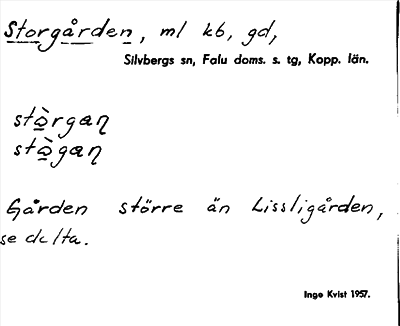 Storgården, ml kb, gd,
Silvbergs sn, Falu doms. s. tg, Kopp. län.
stò̱rgaɳ
stò̱gaɳ
Gården större än Lissligården,
se d:o /ta.
Inge Kvist 1957.